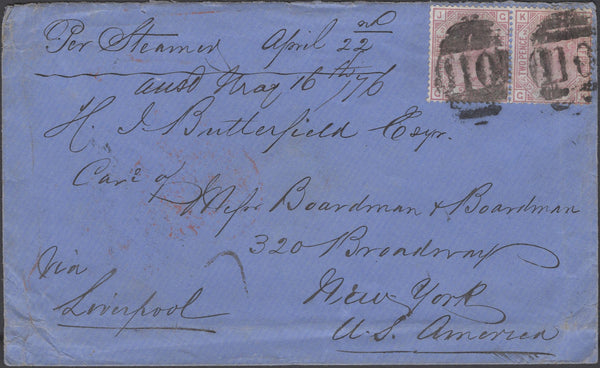 Per Steamer April 22nd
ansd May 16th /76
H. J Butterfield Esqr.
Care of
Messrs Boardman & Boardman
320 Broadway
New York
U.S. America
Via
Liverpool
J G K
TWOPENCE
G G
110 110